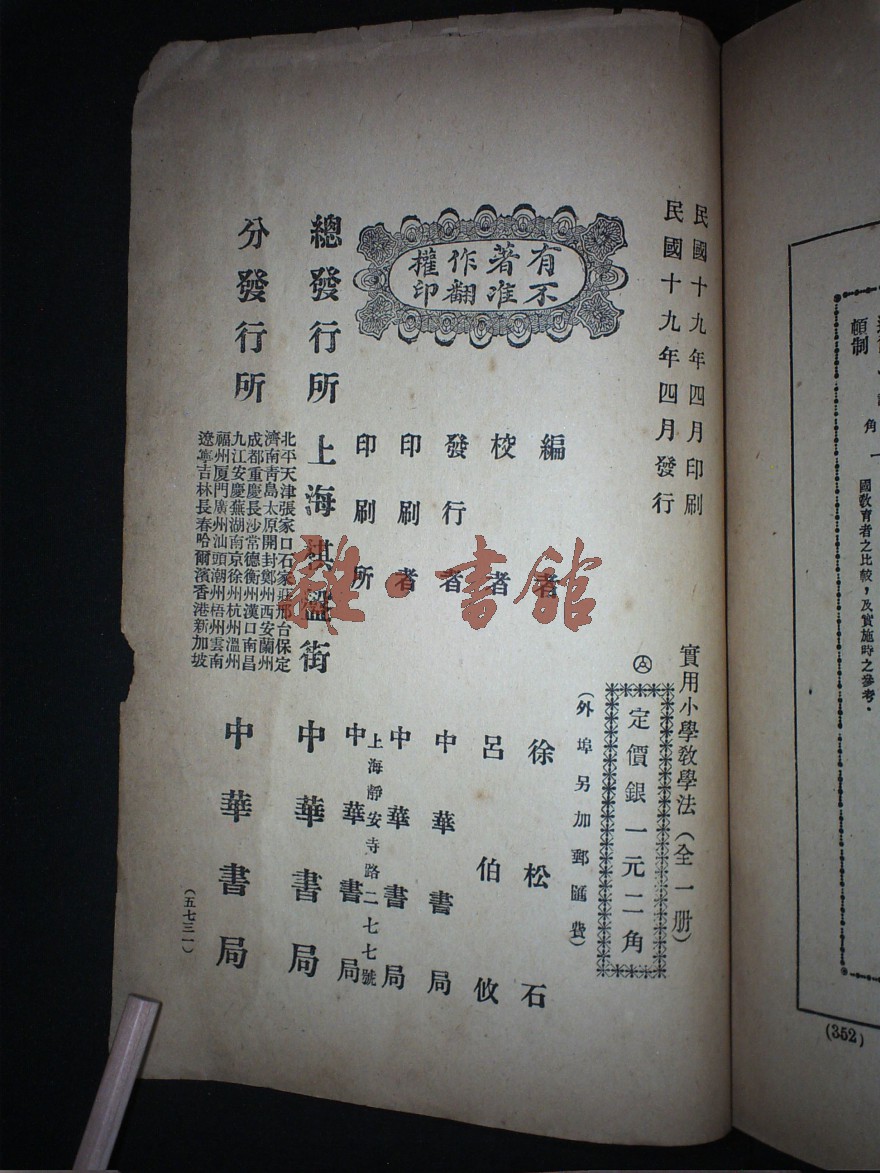 民國十九年四月印刷
民國十九年四月發行
實用小學教學法(全一册)
定價銀一元二角
(外埠另加郵匯費)
有著作權
不准翻印
編者 徐松石
校者 呂伯攸
發行者 中華書局
印刷者 中華書局
上海靜安寺路二七七號
印刷所 中華書局
總發行所 上海棋盤街 中華書局
分發行所
北平天津張家口石家莊邢台保定
濟南青島太原開封鄭州西安蘭州
成都重慶長沙常德衡州漢口南昌
九江安慶蕪湖南京徐州杭州溫州
福州厦門廣州汕頭潮州梧州雲南
遼寧吉林長春哈爾濱香港新加坡
中華書局
(五七三一)
頓制
角
國敎育者之比較,及實施時之參考.
(352)
雜·書館